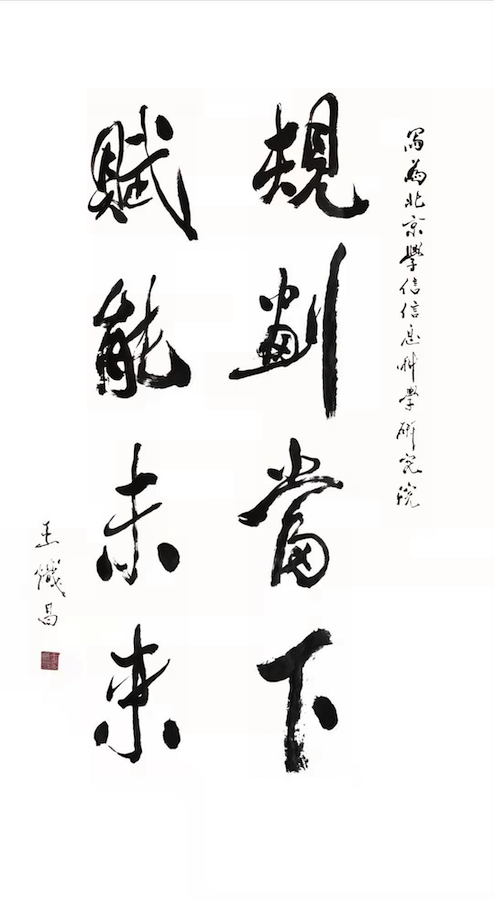 寫為北京學信信息科學研究院
規劃當下
賦能未來
王昌